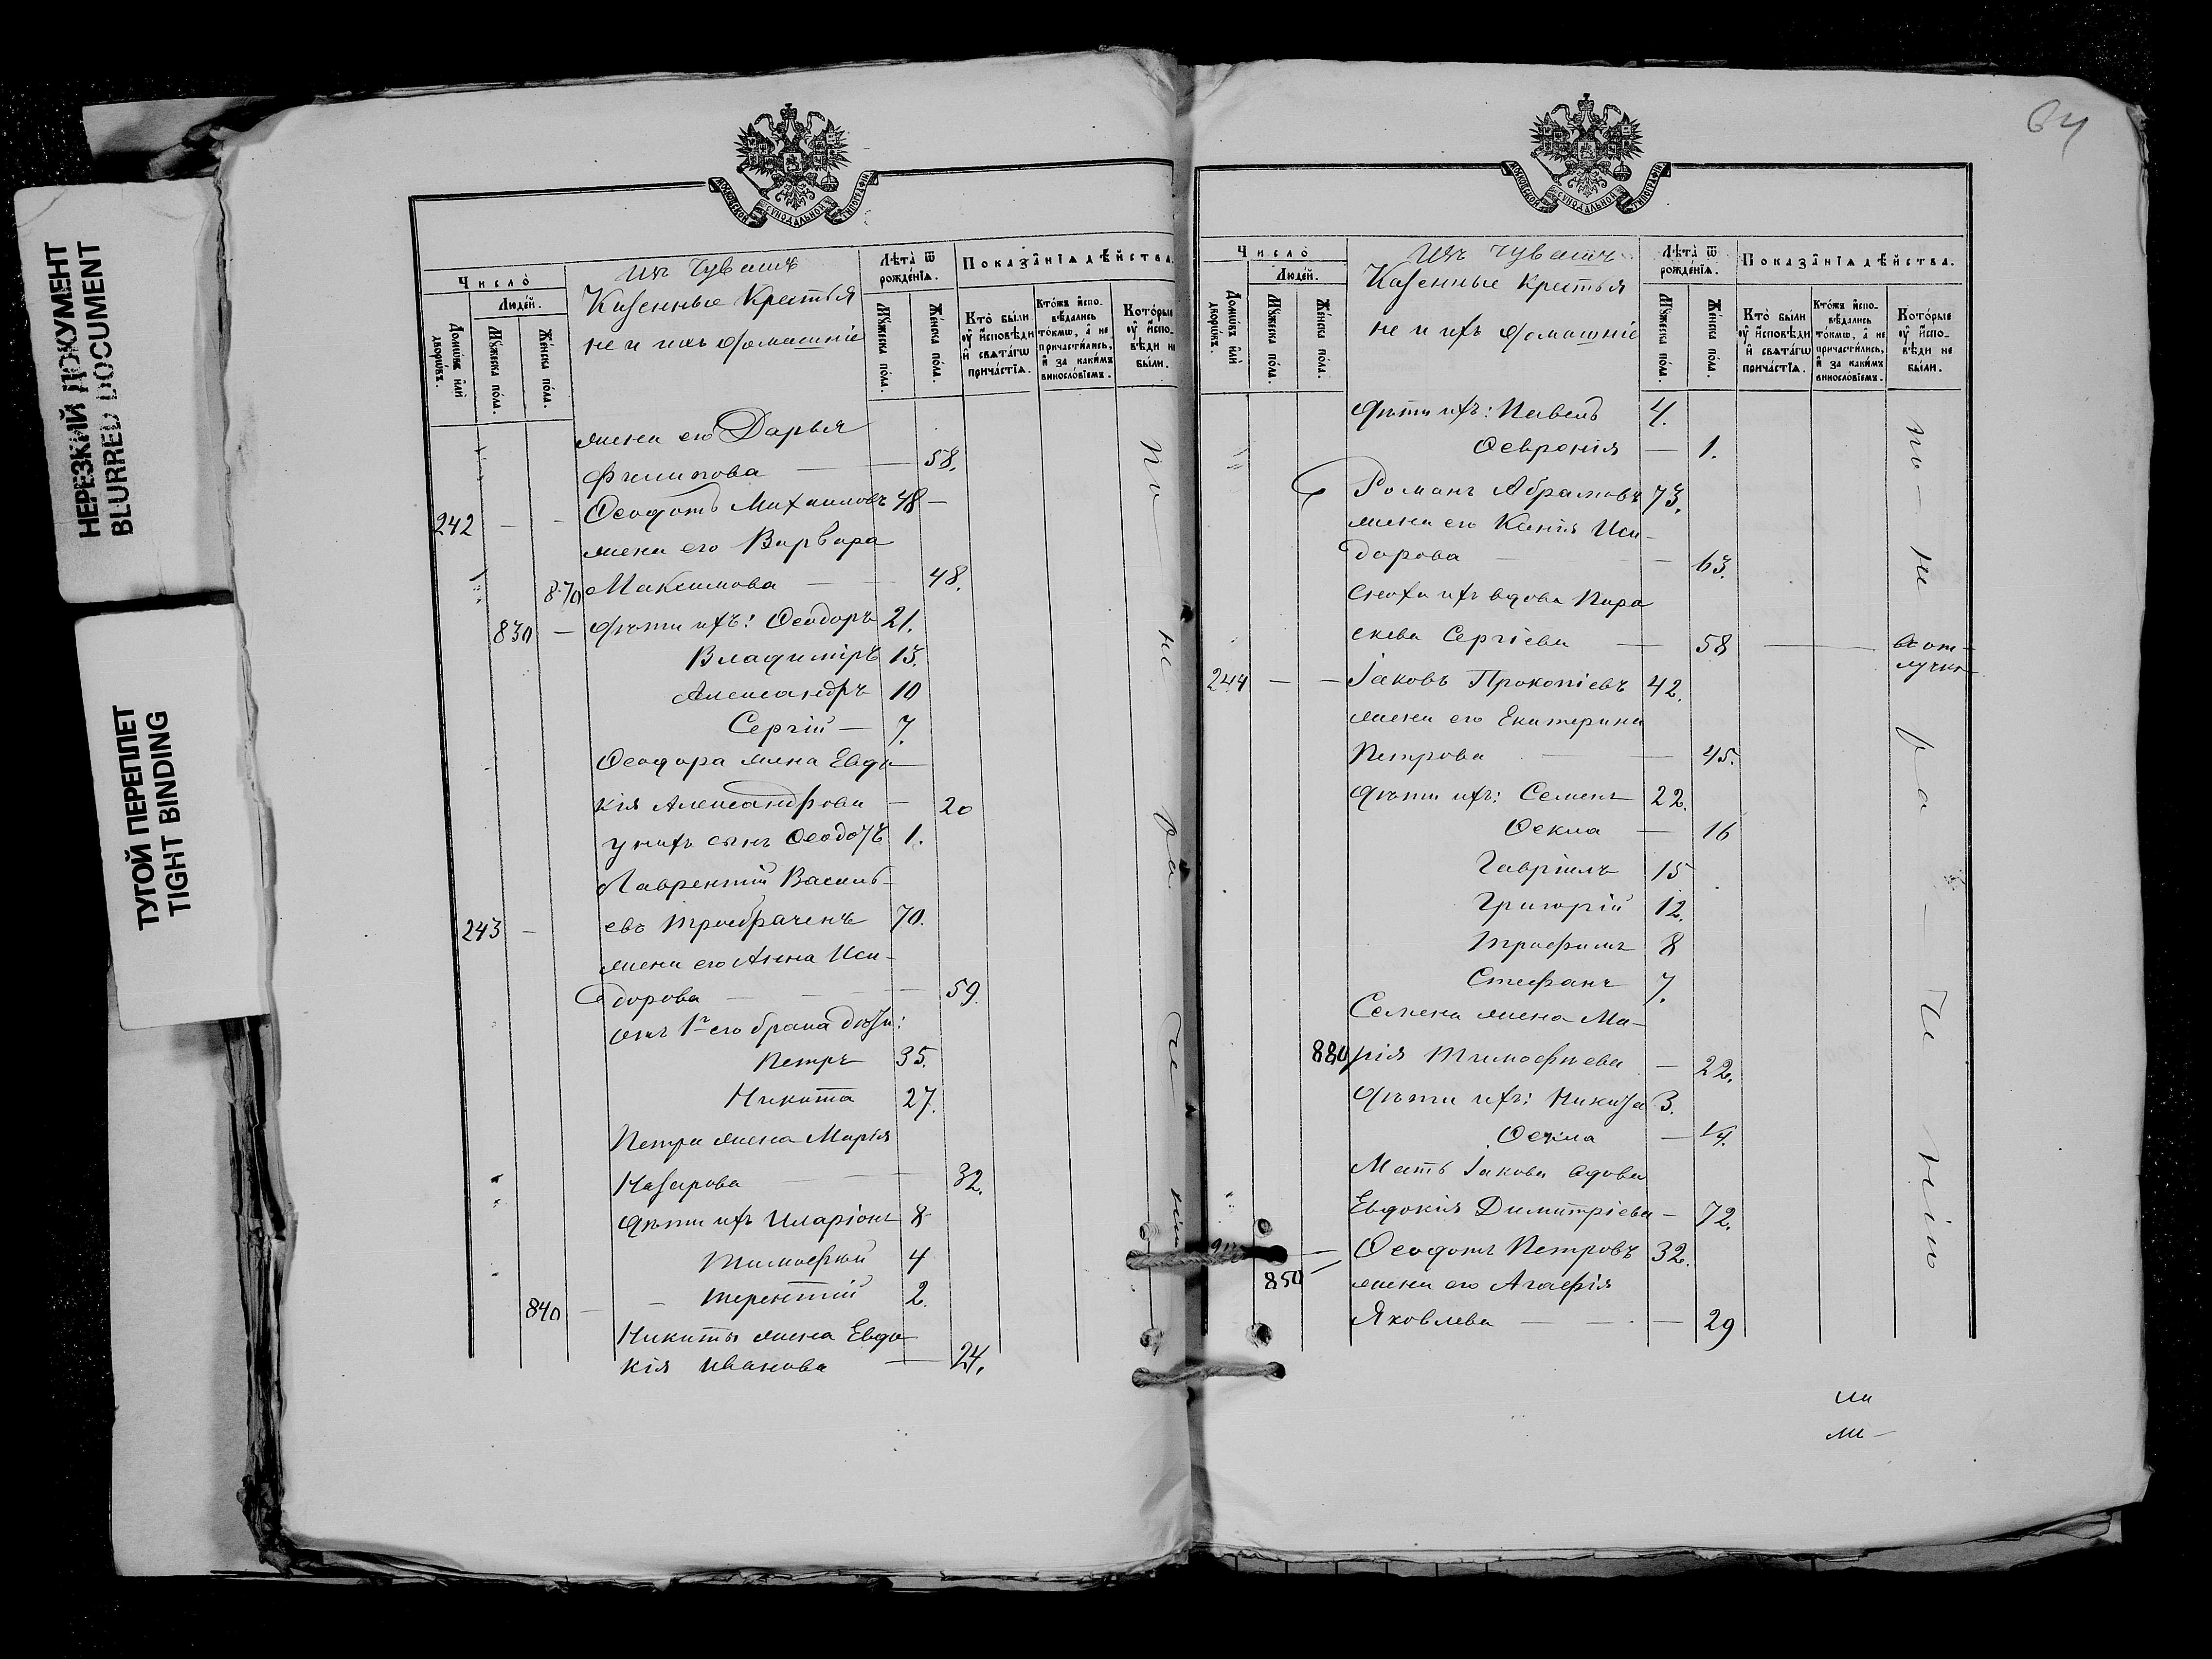 НЕРЕЗКИЙ ДОКУМЕНТ
BLURRED DOCUMENT
ТУГОЙ ПЕРЕПЛЕТ
TIGHT BINDING
МОСКОВСКОЙ СѴНОДАЛЬНОЙ ТИПОГРАФІИ
Число
Людей.
Домѡвъ или дворѡвъ.
Мꙋжеска пола.
Женска пола.
Изъ Чувашъ
Казенные Крестья
не и ихъ домашніе
Лѣта ѿ рожденїѧ.
Мꙋжеска пола.
Женска пола.
Показанїѧ дѣйства.
Кто были оу исповѣди и свѧтагѡ причастїѧ.
Ктожъ исповѣдались токмѡ, а не причастились, и за какимъ винословїемъ.
Которые оу исповѣди не были.
жена его Дарья
Филипова — 58.
242 — - Ѳеодотъ Михаиловъ 48 —
жена его Варвара
870 Максимова — 48.
830 — дѣти ихъ: Ѳеодоръ 21.
Владиміръ 13.
Александръ 10
Сергій — 7.
Ѳеодора жена Евдо
кія Александрова — 20
у нихъ сынъ Ѳеодотъ 1.
Лаврентій Василь-
243 — евъ троебраченъ 70.
жена его Анна Иси-
дорова — 59.
отъ 1го его брака дѣти:
Петръ 35.
Никита 27.
Петра жена Марія
Назарова — 32.
дѣти ихъ Иларіонъ 8
Тимофей 4
840 — Терентій 2.
Никиты жена Евдо
кія Иванова — 24.
по не ра че нію
64
МОСКОВСКОЙ СѴНОДАЛЬНОЙ ТИПОГРАФІИ
Число
Людей.
Домѡвъ или дворѡвъ.
Мꙋжеска пола.
Женска пола.
Изъ Чувашъ
Казенные Крестья
не и ихъ домашніе
Лѣта ѿ рожденїѧ.
Мꙋжеска пола.
Женска пола.
Показанїѧ дѣйства.
Кто были оу исповѣди и свѧтагѡ причастїѧ.
Ктожъ исповѣдались токмѡ, а не причастились, и за какимъ винословїемъ.
Которые оу исповѣди не были.
дѣти ихъ: Павелъ 4.
Ѳевронія — 1.
Романъ Абрамовъ 73.
жена его Ксенія Иси-
дорова — 63.
сноха ихъ вдова Пара
скева Сергіева — 58 — въ от-
лучкѣ
244 — — Іаковъ Прокопіевъ 42.
жена его Екатерина
Петрова — 45.
дѣти ихъ: Семенъ 22.
Ѳекла — 16
Гавріилъ 15
Григорій 12.
Трофимъ 8
Стефанъ 7.
Семена жена Ма-
880 рія Тимофѣева — 22.
дѣти ихъ: Никита 3.
Ѳекла — 1/4.
Мать Іакова вдова
Евдокія Димитріева — 72.
— Ѳеодотъ Петровъ 32.
850 жена его Агафія
Яковлева — 29
по - не ра - че нію